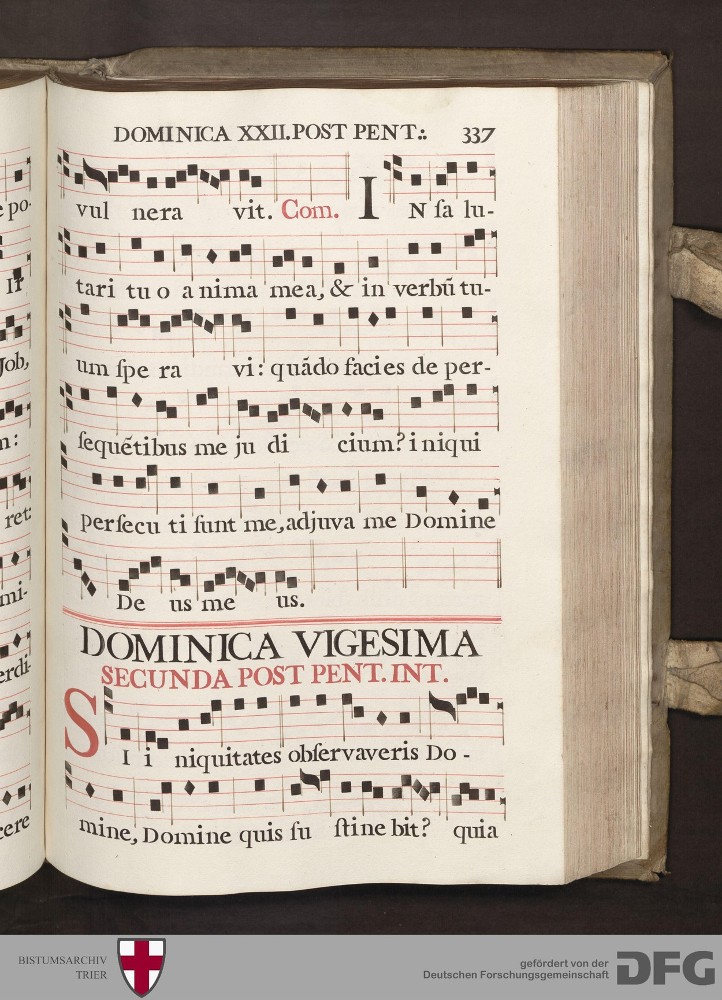 DOMINICA XXII. POST PENT:. 337
vul nera vit. Com. IN ſa lu-
tari tu o a nima mea, & in verbū tu-
um ſpe ra vi: quādo facies de per-
ſequētibus me ju di cium? iniqui
perſecu ti ſunt me, adjuva me Domine
De us me us.
DOMINICA VIGESIMA
SECUNDA POST PENT. INT.
SI i niquitates obſervaveris Do -
mine, Domine quis ſu ſtine bit? quia
e po-
Ir
Job,
m:
ret:
mi-
erdi-
cere
BISTUMSARCHIV
TRIER
gefördert von der
Deutschen Forschungsgemeinschaft
DFG